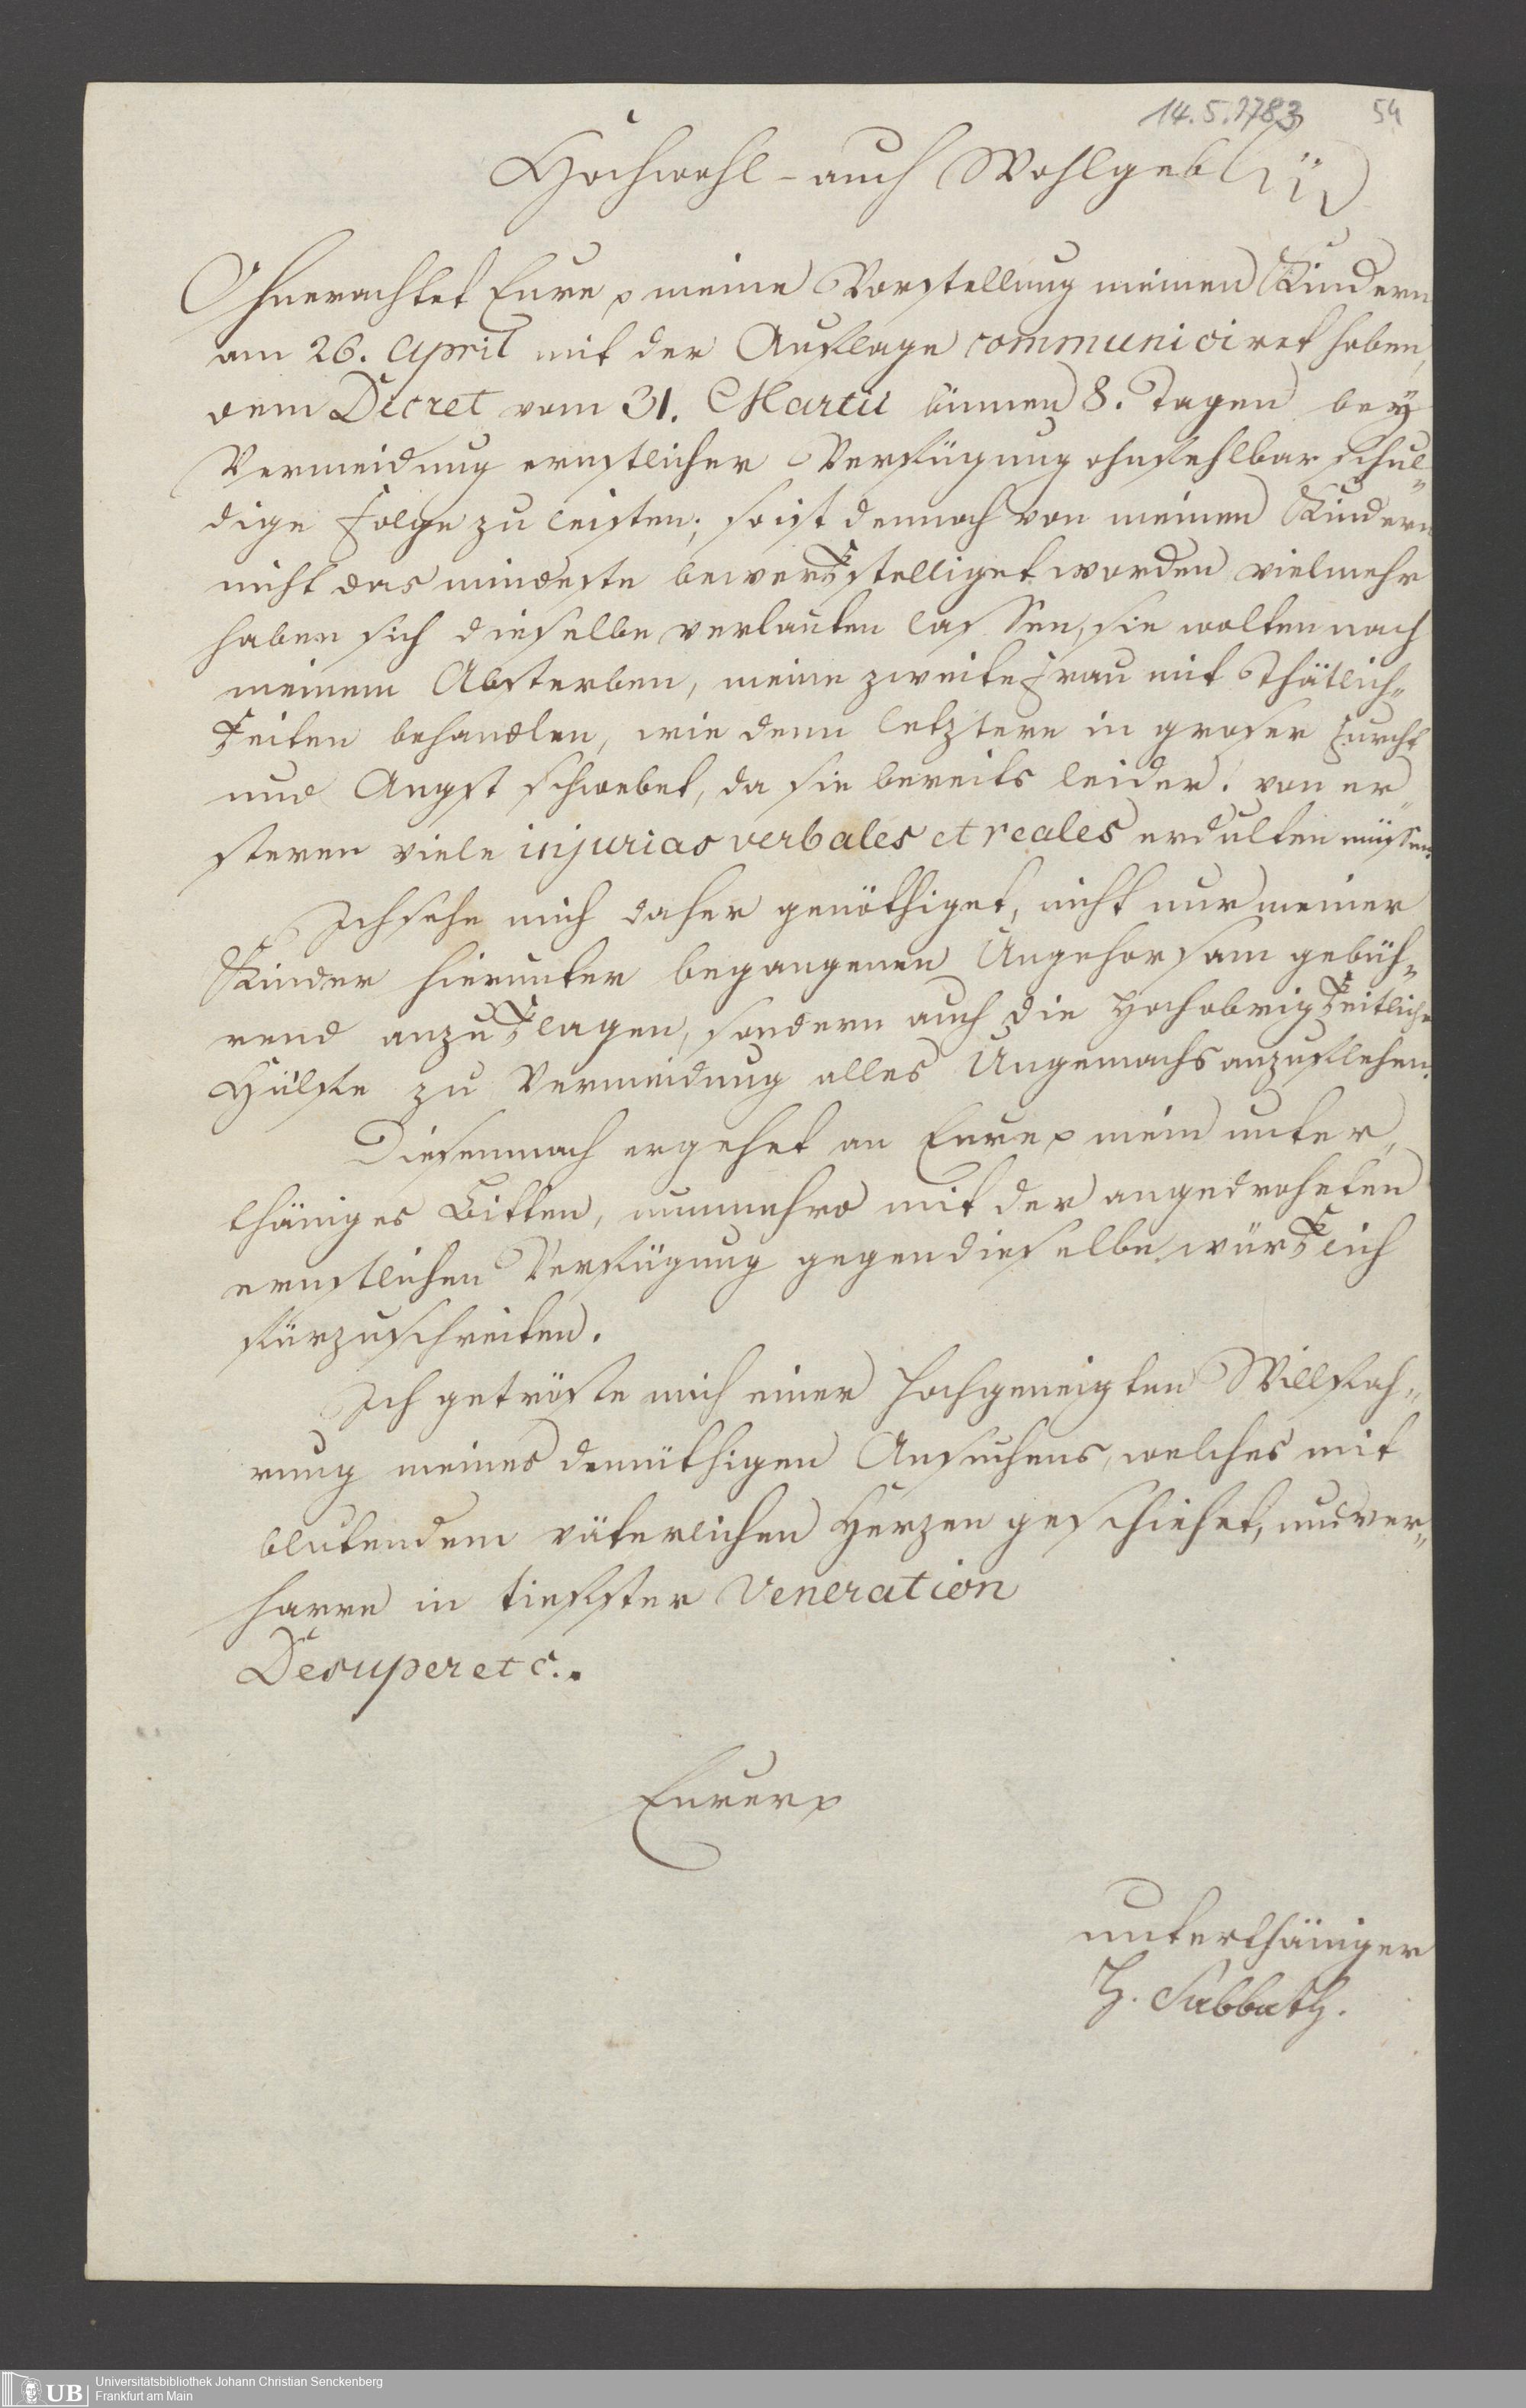 14.5.1783 54
Hochwohl- auch Wohlgeb
Ohnerachtet Eure p meine Vorstellung meinen Kindern
am 26. April mit der Auflage communiciret haben,
dem Decret vom 31. Martii binnen 8. Tagen bey
Vermeidung ernstlicher Verfügung ohnfehlbar schul„
dige Folge zu leisten; so ist dennoch von meinen Kindern
nicht das mindeste bewerkstelliget worden vielmehr
haben sich dieselbe verlauten lassen, sie wolten nach
meinem Absterben, meine zweite Frau mit Thätlich„
keiten behandlen, wie denn letztere in groser Furcht
und Angst schwebet, da sie bereits leider! von er„
steren viele injurias verbales et reales erdulten müssen.
Ich sehe mich daher genöthiget, nicht nur meiner
Kinder hierunter begangenen Ungehorsam gebüh„
rend anzuklagen, sondern auch die Hochobrigkeitliche
Hülfte zu Vermeidung alles Ungemachs anzuflehen.
Diesemnach ergehet an Eure p mein unter„
thäniges Bitten, nunmehro mit der angedroheten
ernstlichen Verfügung gegen dieselbe würklich
fürzuschreiten.
Ich getröste mich einer hochgeneigten Willfah„
rung meines demüthigen Ansuchens, welches mit
blutendem väterlichen Herzen geschiehet, und ver„
harre in tiefster Veneration
Desuper etc..
Eurer p
unterthäniger
H. Sabbath.
UB Universitätsbibliothek Johann Christian Senckenberg
Frankfurt am Main